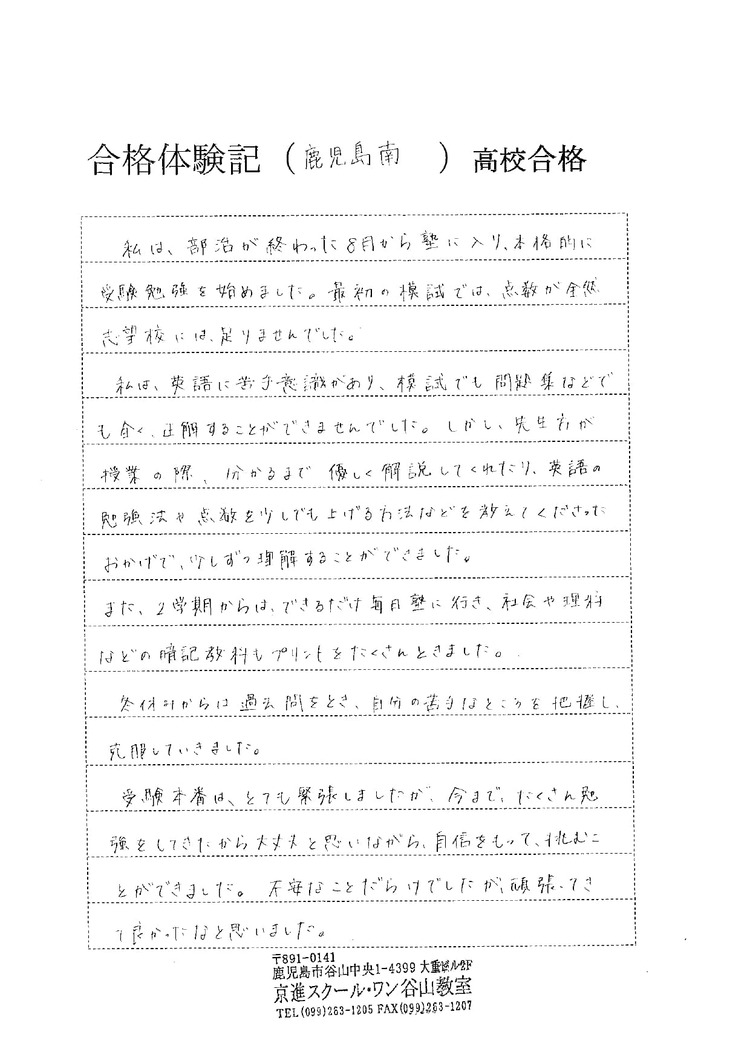 合格体験記（鹿児島南　）高校合格
私は、部活が終わった8月から塾に入り、本格的に
受験勉強を始めました。最初の模試では、点数が全然
志望校には、足りませんでした。
私は、英語に苦手意識があり、模試でも問題集などで
も全く、正解することができませんでした。しかし、先生方が
授業の際、分かるまで優しく解説してくれたり、英語の
勉強法や点数を少しでも上げる方法などを教えてくださった
おかげで、少しずつ理解することができました。
また、2学期からは、できるだけ毎日塾に行き、社会や理科
などの暗記教科もプリントをたくさんときました。
冬休みからは過去問をとき、自分の苦手なところを把握し、
克服していきました。
受験本番は、とても緊張しましたが、今まで、たくさん勉
強をしてきたから大丈夫と思いながら、自信をもって、挑むこ
とができました。不安なことだらけでしたが、頑張ってき
て良かったなと思いました。
〒891-0141
鹿児島市谷山中央1-4399 大重ビル2F
京進スクール・ワン谷山教室
TEL(099)263-1205 FAX(099)263-1207